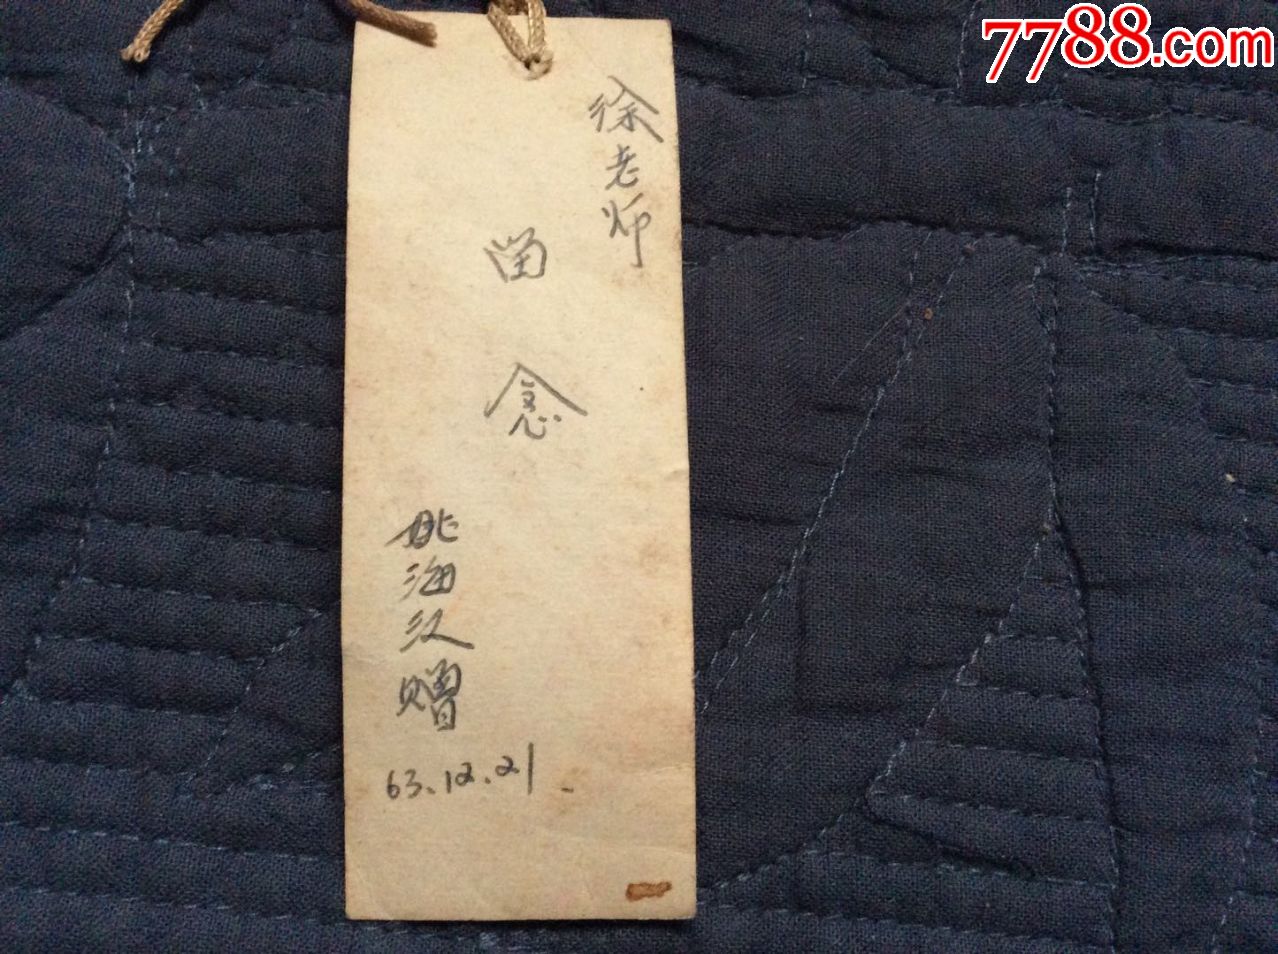 7788.com
徐老师
留念
姚海汉赠
63.12.21.